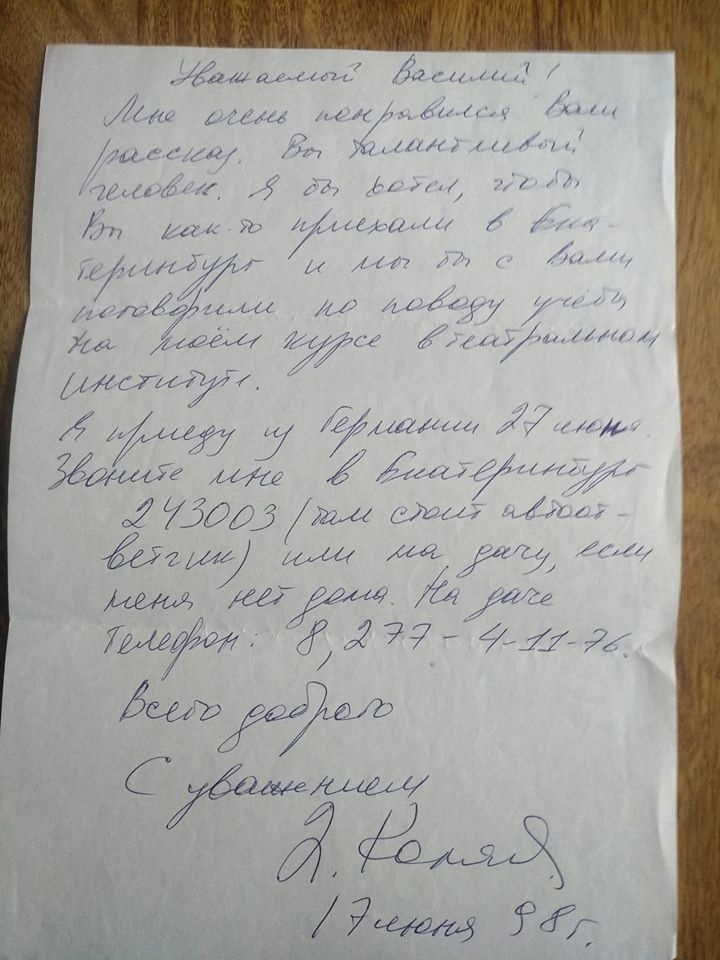 Уважаемый Василий!
Мне очень понравился Ваш
рассказ. Вы талантливый
человек. Я бы хотел, чтобы
Вы как-то приехали в Ека-
теринбург и мы бы с Вами
поговорили по поводу учёбы
на моём курсе в театральном
институте.
Я приеду из Германии 27 июня.
Звоните мне в Екатеринбург
243003 (там стоит автоот-
ветчик) или на дачу, если
меня нет дома. На даче
телефон: 8,277-4-11-76.
Всего доброго
С уважением
17 июня 98 г.